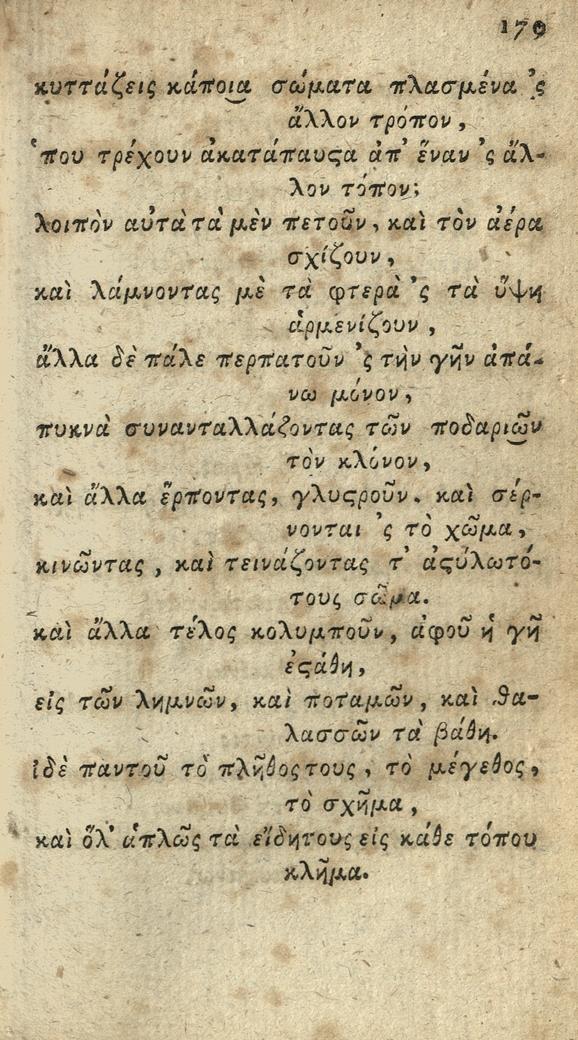 179
κυττάζεις κάποι͜α σώματα πλασμένα 'ς
ἄλλον τρόπον,
'που τρέχουν ἀκατάπαυϛα ἀπ' ἕναν 'ς ἄλ-
λον τόπον;
λοιπὸν αὐτὰ τὰ μὲν πετοῦν, καὶ τὸν ἀέρα
σχίζουν,
καὶ λάμνοντας μὲ τὰ φτερὰ 'ς τὰ ὕψη
ἀρμενίζουν,
ἄλλα δὲ πάλε περπατοῦν 'ς τὴν γῆν ἀπά-
νω μόνον,
πυκνὰ συνανταλλάζοντας τῶν ποδαρι͜ῶν
τὸν κλόνον,
καὶ ἄλλα ἕρποντας, γλυϛροῦν. καὶ σέρ-
νονται 'ς τὸ χῶμα,
κινῶντας, καὶ τεινάζοντας τ' ἀϛύλωτό-
τους σῶμα.
καὶ ἄλλα τέλος κολυμποῦν, ἀφοῦ ἡ γῆ
ἐϛάθη,
εἰς τῶν λημνῶν, καὶ ποταμῶν, καὶ θα-
λασσῶν τὰ βάθη.
ἰδὲ παντοῦ τὸ πλῆθος τους, τὸ μέγεθος,
τὸ σχῆμα,
καὶ ὅλ' ἁπλῶς τὰ εἴδητους εἰς κάθε τόπου
κλῆμα.